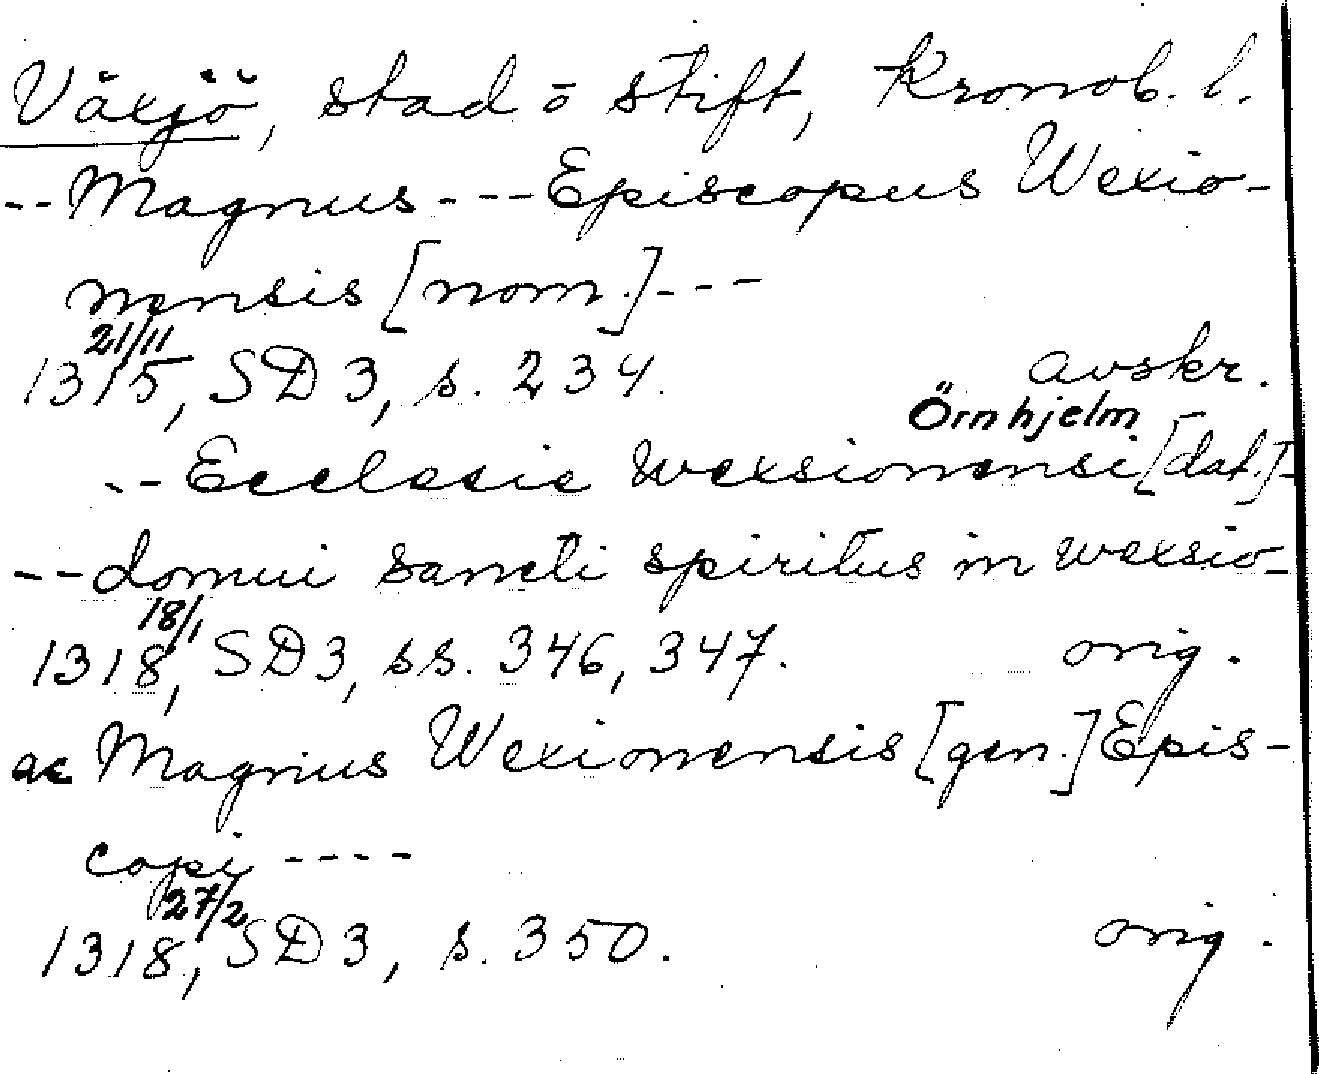 Växjö, stad o stift, Kronob. l.
-- Magnus --- Episcopus Wexio-
nensis [nom.] ---
21/11
1315, SD 3, s. 234. avskr.
Örnhjelm
-- Ecclesie wexsionensi [dat.] -
-- domui sancti spiritus in wexsio-
18/1
1318, SD 3, ss. 346, 347. orig.
ac Magnius Wexionensis [gen.] Epis-
copi ----
27/2
1318, SD 3, s. 350. orig.